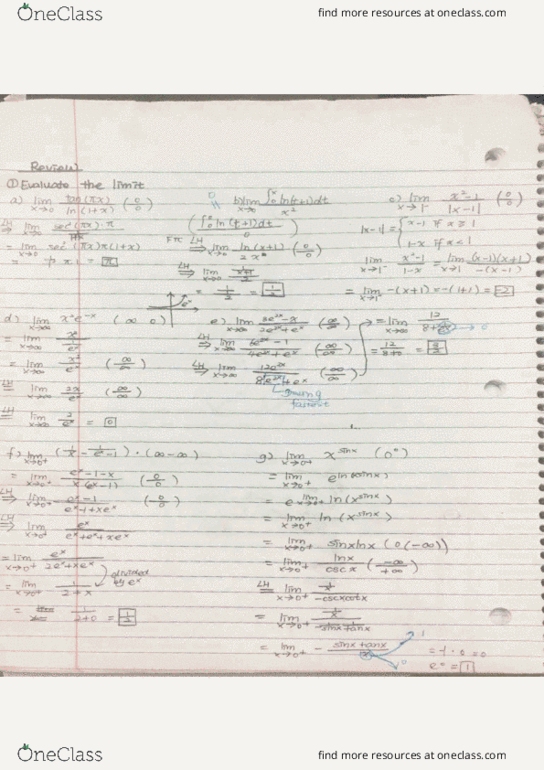 OneClass
find more resources at oneclass.com
Review
① Evaluate the limit
a) lim x→0 tan(πx) / ln(1+x) (0/0)
LH ⇒ lim x→0
= lim x→0 sec²(πx)π(1+x)
= π
b) lim x→0 ∫₀ˣ ln(t+1)dt / x²
(∫₀ˣ ln(t+1)dt / 0)
FTC LH ⇒ lim x→0 ln(x+1) / 2x (0/0)
LH ⇒ lim x→0
= 1/2 = 1/2
c) lim x→1⁻ x²-1 / |x-1| (0/0)
|x-1| = { x-1 if x ≥ 1
1-x if x < 1
lim x→1⁻ x²-1 / 1-x = lim x→1 (x-1)(x+1) / -(x-1)
= lim x→1⁻ -(x+1) = -(1+1) = -2
d) lim x→∞ x²e⁻ˣ (∞ 0)
= lim x→∞ x² / eˣ (∞/∞)
LH = lim x→∞ 2x / eˣ (∞/∞)
LH = lim x→∞ 2 / eˣ = 0
eˣ
e) lim x→∞ (∞/∞)
LH ⇒ lim x→∞ 6e²ˣ-1 / 4e²ˣ+eˣ (∞/∞)
LH ⇒ lim x→∞ 12e²ˣ / 8e²ˣ+eˣ (∞/∞)
= lim x→∞
= 12 / 8+0 = 3/2
f) lim x→0⁺ (1/x - 1/eˣ-1) · (∞-∞)
= lim x→0⁺ eˣ-1-x / x(eˣ-1) (0/0)
LH ⇒ lim x→0⁺ eˣ-1 / (0/0)
LH ⇒ lim x→0⁺ eˣ / eˣ+eˣ+xeˣ
= lim x→0⁺ eˣ / 2eˣ+xeˣ
divided by eˣ
= lim x→0⁺ 1 / 2+x
= 1 / 2+0 = 1/2
g) lim x→0⁺ x^sinx (0⁰)
= lim x→0⁺
= e lim x→0⁺ ln(x^sinx)
= lim x→0⁺ ln(x^sinx)
= lim x→0⁺ sinx lnx (0(-∞))
= lim x→0⁺ lnx / cscx (-∞/+∞)
LH = lim x→0⁺ 1/x / -cscxcotx
= lim x→0⁺
= lim x→0⁺ - sinx tanx / x
= -1 · 0 = 0
e⁰ = 1
OneClass
find more resources at oneclass.com